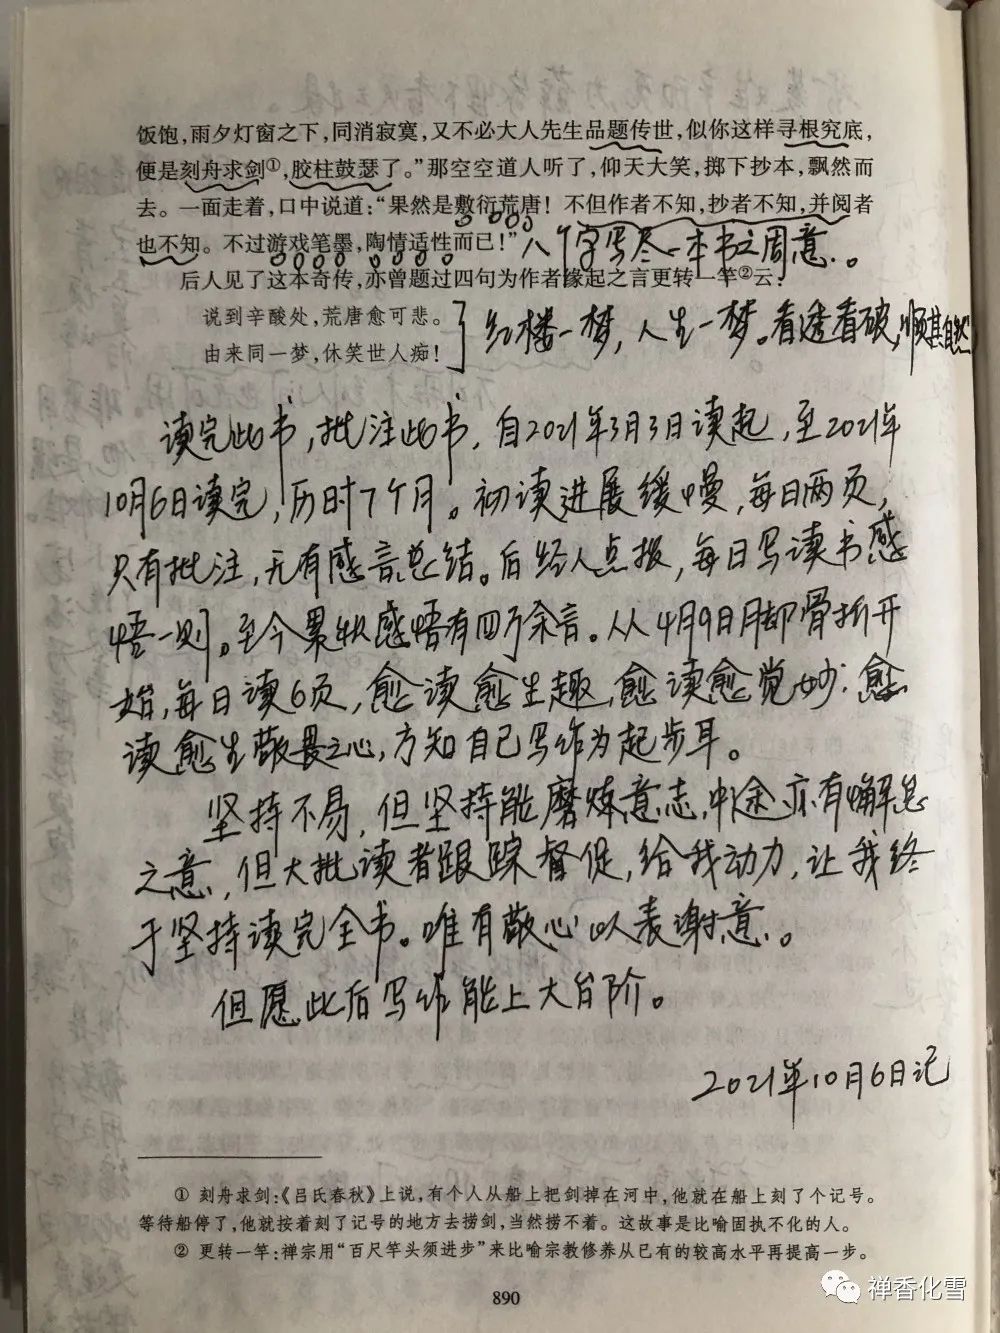 饭饱，雨夕灯窗之下，同消寂寞，又不必大人先生品题传世，似你这样寻根究底，
便是刻舟求剑①，胶柱鼓瑟了。”那空空道人听了，仰天大笑，掷下抄本，飘然而
去。一面走着，口中说道：“果然是敷衍荒唐！不但作者不知，抄者不知，并阅者
也不知。不过游戏笔墨，陶情适性而已！”
八个字写尽一本书之用意。
后人见了这本奇传，亦曾题过四句为作者缘起之言更转一竿②云：
说到辛酸处，荒唐愈可悲。
由来同一梦，休笑世人痴！
红楼一梦，人生一梦。看透看破，顺其自然
读完此书，批注此书，自2021年3月3日读起，至2021年
10月6日读完，历时7个月。初读进展缓慢，每日两页，
只有批注，无有感言总结。后经人点拨，每日写读书感
悟一则。至今累积感悟有四万余言。从4月9日脚骨折开
始，每日读6页，愈读愈生趣，愈读愈觉妙，愈
读愈生敬畏之心，方知自己写作为起步耳。
坚持不易，但坚持能磨炼意志，中途亦有懈怠
之意，但大批读者跟踪督促，给我动力，让我终
于坚持读完全书。唯有敬心以表谢意。
但愿此后写作能上大台阶。
2021年10月6日记
① 刻舟求剑：《吕氏春秋》上说，有个人从船上把剑掉在河中，他就在船上刻了个记号。
等待船停了，他就按着刻了记号的地方去捞剑，当然捞不着。这故事是比喻固执不化的人。
② 更转一竿：禅宗用“百尺竿头须进步”来比喻宗教修养从已有的较高水平再提高一步。
禅香化雪
890